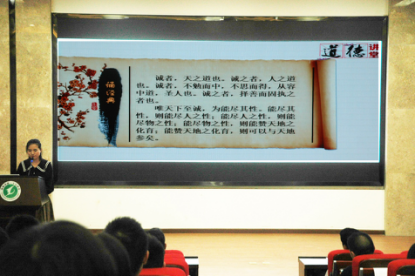 道德讲堂
诵经典
诚者，天之道也。诚之者，人之道
也。诚者，不勉而中，不思而得，从容
中道，圣人也。诚之者，择善而固执之
者也。
唯天下至诚，为能尽其性。能尽其
性，则能尽人之性；能尽人之性，则能
尽物之性；能尽物之性，则能赞天地之
化育；能赞天地之化育，则可以与天地
参矣。